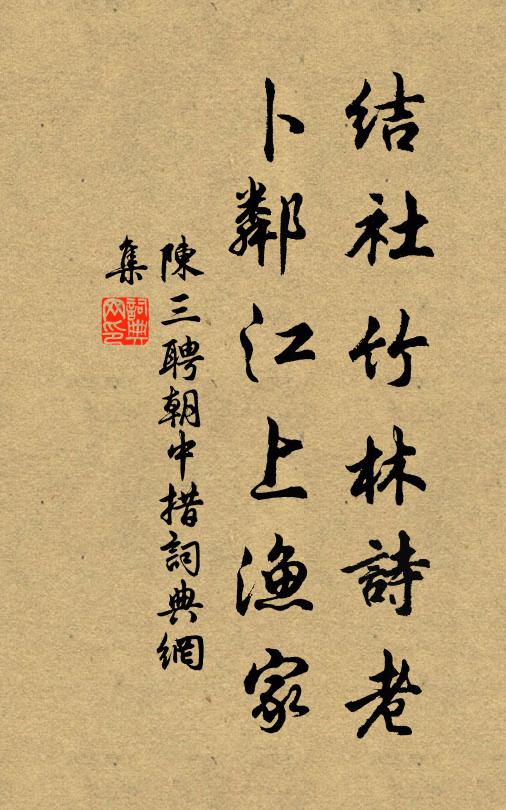 結社竹林詩老
卜鄰江上漁家
陳三聘朝中措詞典網
集
詞典
網印